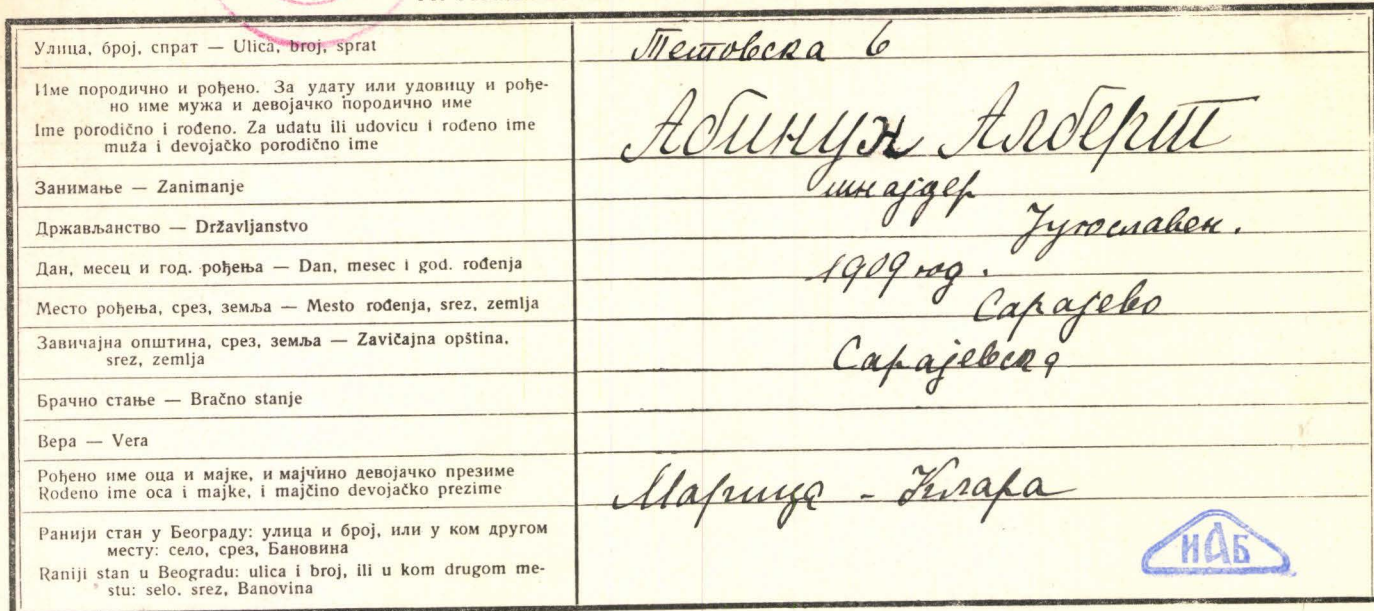 Улица, број, спрат — Ulica, broj, sprat
Тетовска 6
Име породично и рођено. За удату или удовицу и рође-
но име мужа и девојачко породично име
Ime porodično i rođeno. Za udatu ili udovicu i rođeno ime
muža i devojačko porodično ime
Абинун Алберт
Занимање — Zanimanje
шнајдер
Држављанство — Državljanstvo
Југославен.
Дан, месец и год. рођења — Dan, mesec i god. rođenja
1909 год.
Место рођења, срез, земља — Mesto rođenja, srez, zemlja
Сарајево
Завичајна општина, срез, земља — Zavičajna opština,
srez, zemlja
Сарајевска
Брачно стање — Bračno stanje
Вера — Vera
Рођено име оца и мајке, и мајчино девојачко презиме
Rođeno ime oca i majke, i majčino devojačko prezime
- Клара
Ранији стан у Београду: улица и број, или у ком другом
месту: село, срез, Бановина
Raniji stan u Beogradu: ulica i broj, ili u kom drugom me-
stu: selo. srez, Banovina
ИАБ